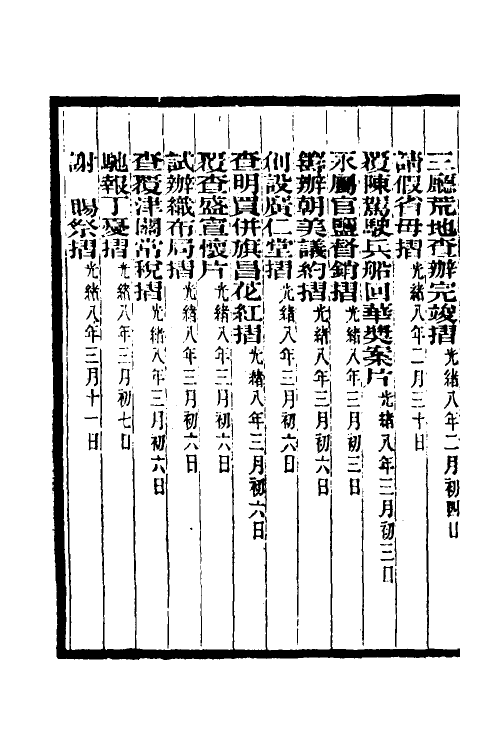 三廳荒地查辦完竣摺光緒八年二月初四日
請假省母摺光緒八年二月三十日
覆陳駕駛兵船回華獎案片光緒八年三月初三日
永屬官鹽督銷摺光緒八年三月初三日
籌辦朝美議約摺光緒八年三月初六日
創設廣仁堂摺光緒八年三月初六日
查明買併旗昌花紅摺光緒八年三月初六日
覆查盛宣懷片光緒八年三月初六日
試辦織布局摺光緒八年三月初六日
查覆津關常稅摺光緒八年三月初六日
馳報丁憂摺光緒八年三月初七日
謝 賜祭摺光緒八年三月十一日